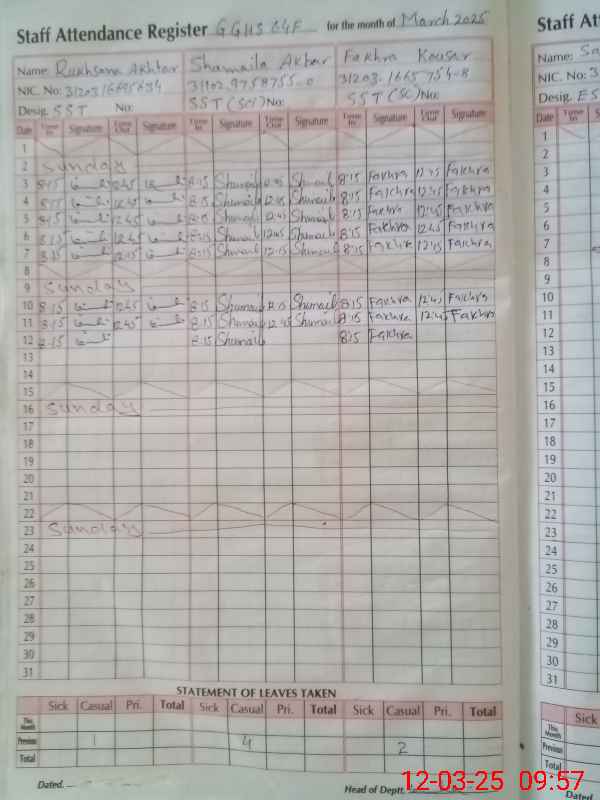 Staff Attendance Register GGHS 64F for the month of March 2025
Name: Rukhsana Akhtar Shamaila Akhtar Fakhra Kousar
NIC. No: 31202.9758755-0 31203.1665754-8
Desig. SST No: SST (SCI) No: SST (SC) No:
Date Time In Signature Time Out Signature Time In Signature Time Out Signature Time In Signature Time Out Signature
1
2 Sunday
3 8:15 12:45 8:15 Shumaila 12:45 Shumaila 8:15 Fakhra 12:45 Fakhra
4 8:15 12:45 8:15 Shumaila 12:45 Shumaila 8:15 Fakhra 12:45 Fakhra
5 8:15 12:45 8:15 Shumaila 12:45 Shumaila 8:15 Fakhra 12:45 Fakhra
6 8:15 12:45 8:15 Shumaila 12:45 Shumaila 8:15 Fakhra 12:45 Fakhra
7 8:15 12:15 8:15 Shumaila 12:15 Shumaila 8:15 Fakhra 12:15 Fakhra
8
9 Sunday
10 8:15 12:45 8:15 Shumaila 12:45 Shumaila 8:15 Fakhra 12:45 Fakhra
11 8:15 12:45 8:15 Shumaila 12:45 Shumaila 8:15 Fakhra 12:45 Fakhra
12 8:15 8:15 Shumaila 8:15 Fakhra
13
14
15
16 Sunday
17
18
19
20
21
22
23 Sunday
24
25
26
27
28
29
30
31
STATEMENT OF LEAVES TAKEN
Sick Casual Pri. Total Sick Casual Pri. Total Sick Casual Pri. Total
This Month
Previous 1 4 2
Total
Dated. Head of Deptt.
Staff At
Name: Sa
NIC. No: 3
Desig. ES
Date Time In Signatu
1
2
3
4
5
6
7
8
9
10
11
12
13
14
15
16
17
18
19
20
21
22
23
24
25
26
27
28
29
30
31
Sick
This Month
Previous
Total
Dated
12-03-25 09:57